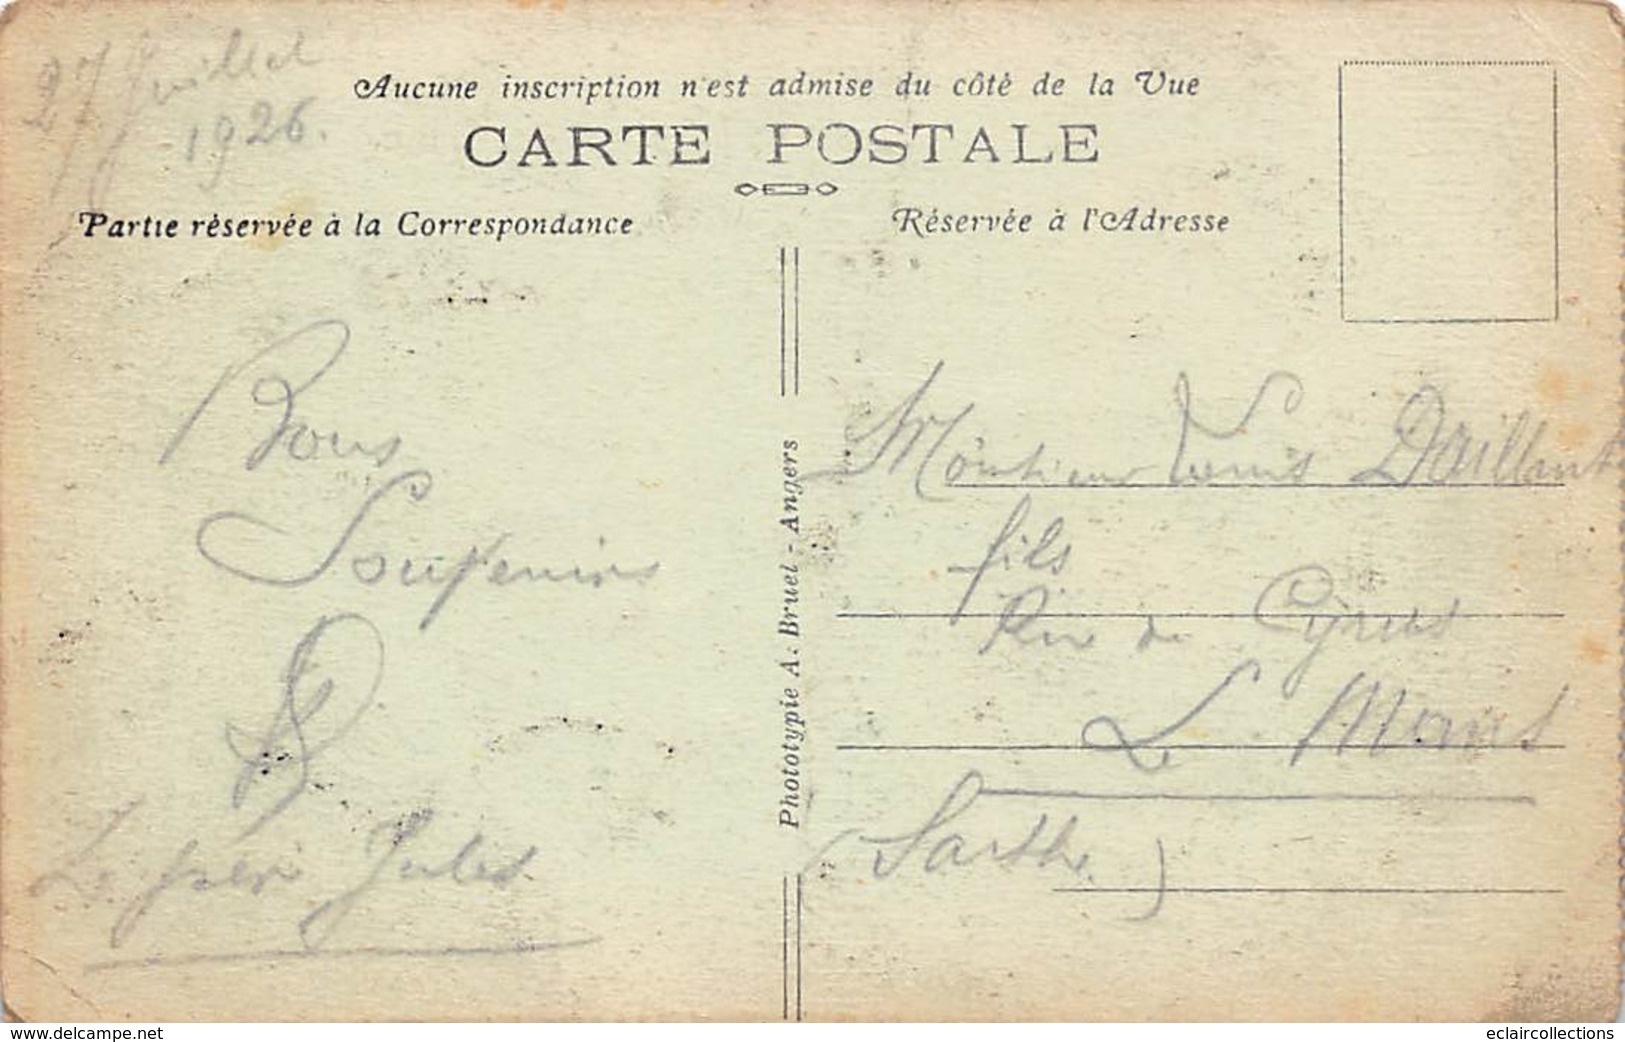 27 Juillet
1926.
Aucune inscription n'est admise du côté de la Vue
CARTE POSTALE
Partie réservée à la Correspondance
Réservée à l'Adresse
Bons
Souvenirs
Le frère Jules
Phototypie A. Bruel - Angers
Monsieur Daillant
fils
Rue de Cyrus
Le Mans
(Sarthe)
www.delcampe.net
eclaircollections